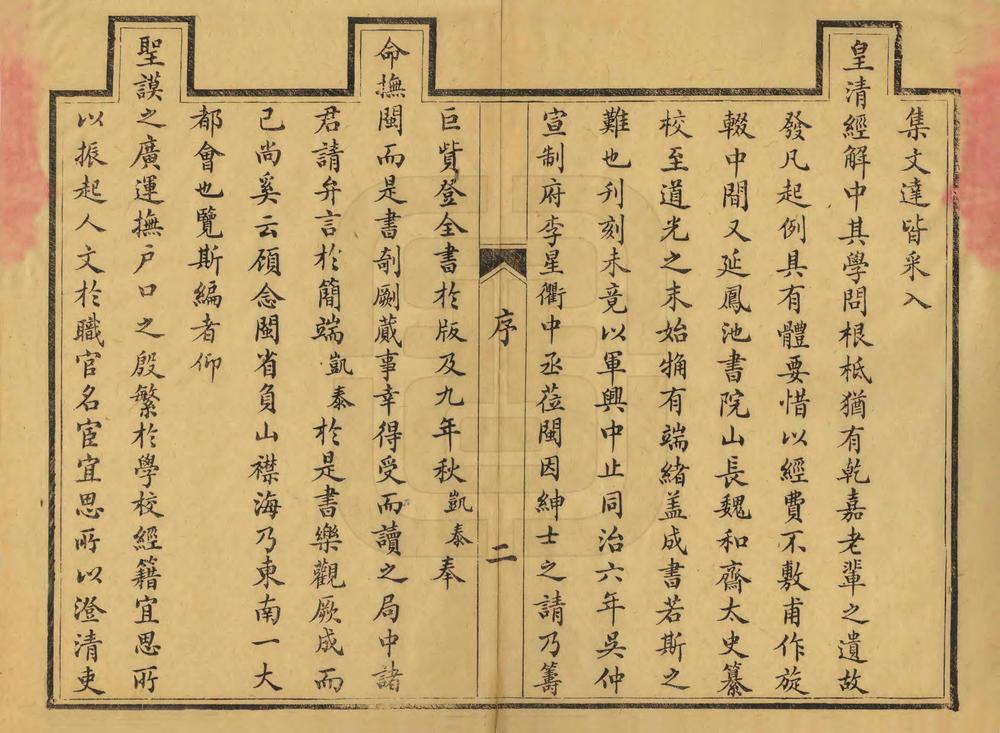 集文達皆采入
皇清經解中其學問根柢猶有乾嘉老輩之遺故
發凡起例具有體要惜以經費不敷甫作旋
輟中間又延鳳池書院山長魏和齋太史纂
校至道光之末始觕有端緒盖成書若斯之
難也刋刻未竟以軍興中止同治六年吳仲
宣制府李星衢中丞莅閩因紳士之請乃籌
序
二
巨貲登全書於版及九年秋凱泰奉
命撫閩而是書剞劂蕆事幸得受而讀之局中諸
君請弁言於簡端凱泰於是書樂觀厥成而
已尚奚云碩念閩省負山襟海乃東南一大
都會也覽斯編者仰
聖謨之廣運撫户口之殷繁於學校經籍宜思所
以振起人文於職官名宦宜思所以澄清吏